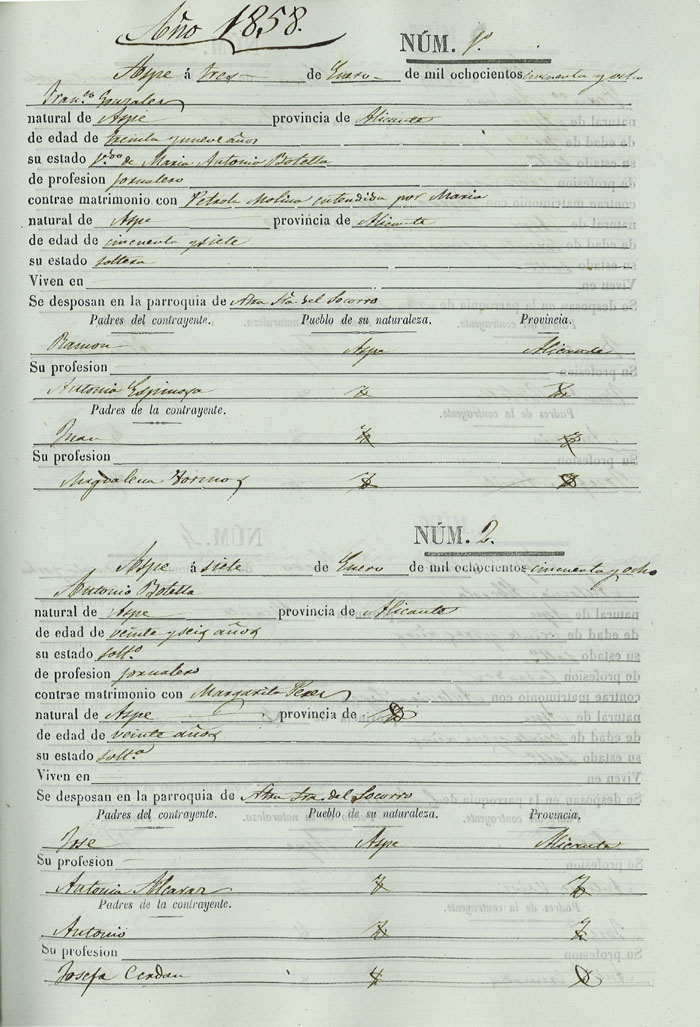 Año 1858.
NÚM. 1º
Aspe á tres de Enero de mil ochocientos cincuenta y ocho
Franco Gonzales
natural de Aspe provincia de Alicante
de edad de treinta y nueve años
su estado Vdo de Maria Antonia Botella
de profesion jornalero
contrae matrimonio con Petrola Molina entendida por Maria
natural de Aspe provincia de Alicante
de edad de cincuenta y siete
su estado soltera
Viven en
Se desposan en la parroquia de Ntra Sra. del Socorro
Padres del contrayente. Pueblo de su naturaleza. Provincia.
Ramon Aspe Alicante
Su profesion
Antonia Espinoza
Padres de la contrayente.
Juan
Su profesion
Magdalena Tormo
NÚM. 2.
Aspe á siete de Enero de mil ochocientos cincuenta y ocho
Antonio Botella
natural de Aspe provincia de Alicante
de edad de veinte y seis años
su estado solto
de profesion jornalero
contrae matrimonio con Margarita Perez
natural de Aspe provincia de
de edad de veinte años
su estado solta
Viven en
Se desposan en la parroquia de Ntra Sra. del Socorro
Padres del contrayente. Pueblo de su naturaleza. Provincia.
Jose Aspe Alicante
Su profesion
Antonia Alcaraz
Padres de la contrayente.
Antonio
Su profesion
Josefa Cerdan